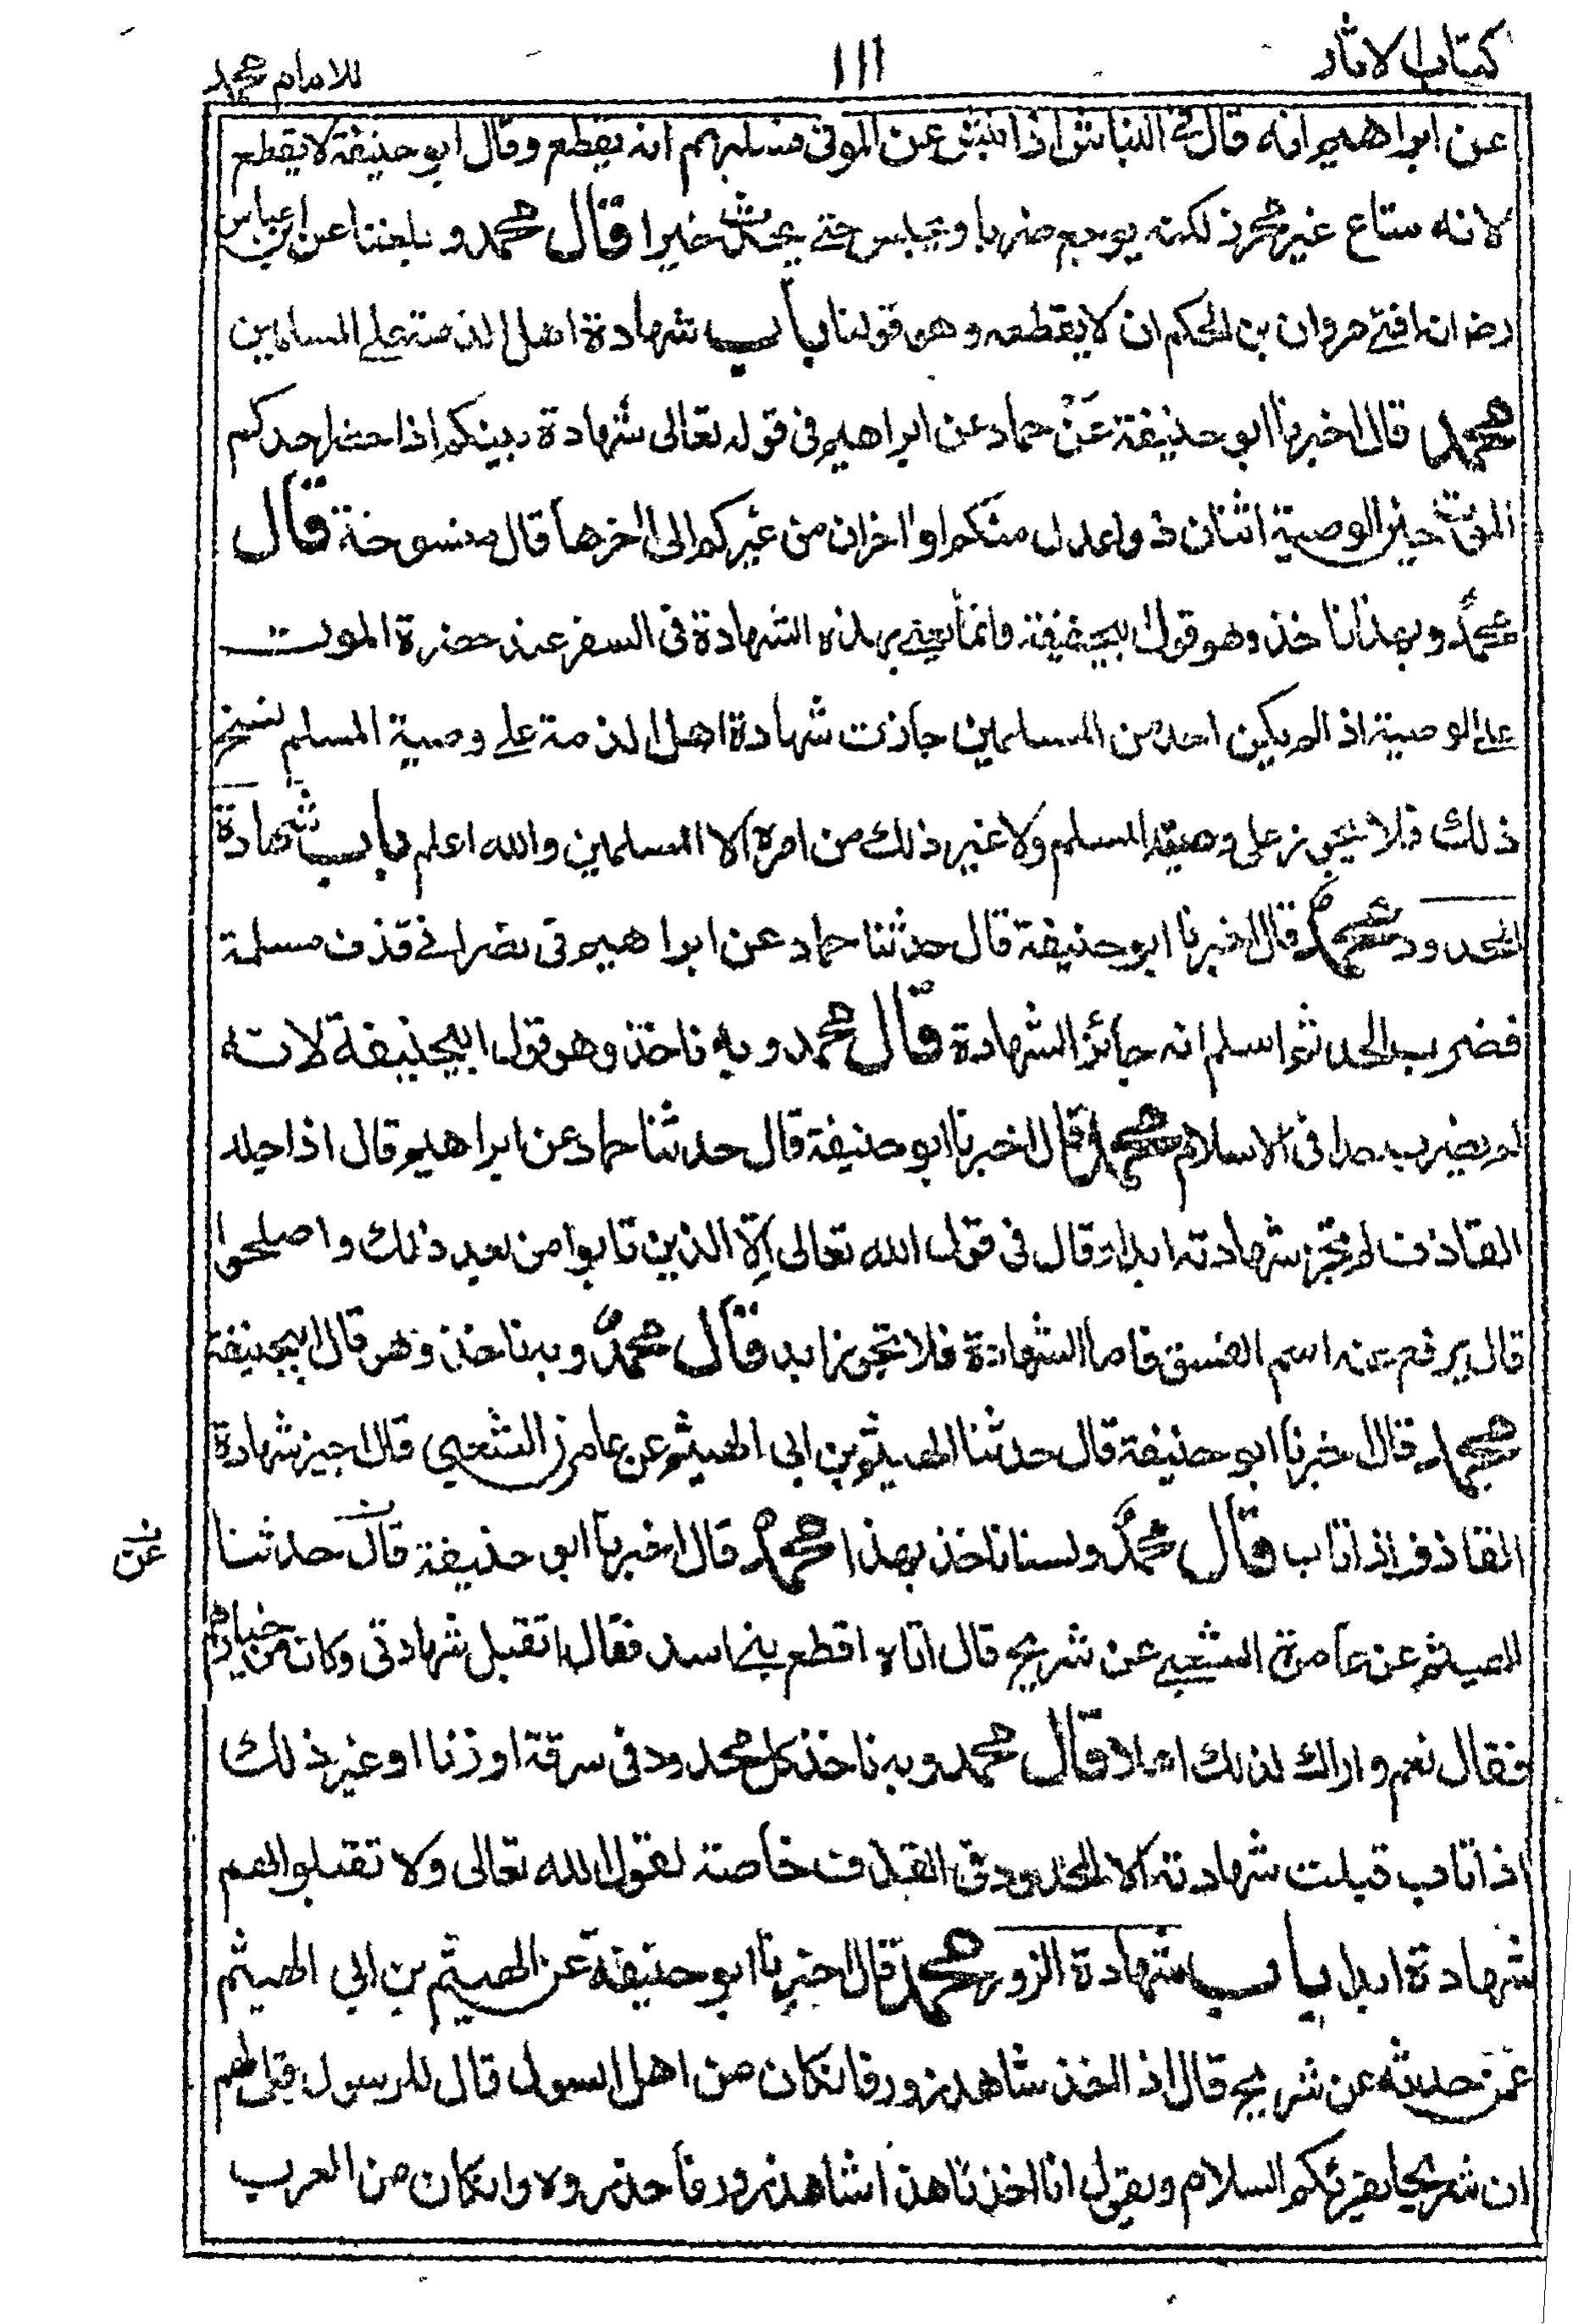 كتاب الاثار
١١١
للامام محمد
عن ابراهيم انه قال في النباش اذا نبش عن الموتى فسلبهم انه يقطع وقال ابو حنيفة لا يقطع
لانه متاع غير محرز لكنه يوجع ضربا ويحبس حتى يحدث خيرا قال محمد وبلغنا عن ابن عباس
رض انه افتى مروان بن الحكم ان لا يقطعه وهو قولنا باب شهادة اهل الذمة على المسلمين
محمد قال اخبرنا ابو حنيفة عن حماد عن ابراهيم فى قوله تعالى شهادة بينكم اذا حضر احدكم
الموت حين الوصية اثنان ذوا عدل منكم او اخران من غيركم الى اخرها قال منسوخة قال
محمد وبهذا ناخذ وهو قول ابيحنيفة وانما يعني بهذه الشهادة فى السفر عند حضرة الموت
على الوصية اذ الم يكن احد من المسلمين جازت شهادة اهل الذمة على وصية المسلم نسخ
ذلك فلا يجوز على وصية المسلم ولا غير ذلك من امره الا المسلمين والله اعلم باب شهادة
المحدود محمد قال اخبرنا ابو حنيفة قال حدثنا حماد عن ابراهيم فى نصرانى قذف مسلمة
فضرب الحد ثم اسلم انه جائز الشهادة قال محمد وبه ناخذ وهو قول ابيحنيفة لانه
لم يضرب حدا فى الاسلام محمد قال اخبرنا ابو حنيفة قال حدثنا حماد عن ابراهيم قال اذا جلد
القاذف لم تجز شهادته ابدا وقال فى قول الله تعالى الا الذين تابوا من بعد ذلك واصلحوا
قال يرفع عنه اسم الفسق فاما الشهادة فلا تجوز ابد قال محمد وبه ناخذ وهو قال ابيحنيفة
محمد قال اخبرنا ابو حنيفة قال حدثنا الهيثم بن ابى الهيثم عن عامر الشعبي قال اجيز شهادة
القاذف اذا تاب قال محمد ولسنا ناخذ بهذا محمد قال اخبرنا ابو حنيفة قال حدثنا
عن
الهيثم عن عامر الشعبي عن شريح قال اتاه اقطع بني اسد فقال اتقبل شهادتى وكان من خيارهم
فقال نعم واراك لذلك اهلا قال محمد وبه ناخذ كل محدود فى سرقة او زنا او غير ذلك
اذا تاب قبلت شهادته الا المحدود فى القذف خاصة لقول الله تعالى ولا تقبلوا لهم
شهادة ابدا باب شهادة الزور محمد قال اخبرنا ابو حنيفة عن الهيثم بن ابى الهيثم
عمن حدثه عن شريح قال اذ ااخذ شاهد زور فانكان من اهل السوق قال للرسول قل لهم
ان شريحا يقرئكم السلام ويقول انا اخذنا هذا شاهد زور فاحذروه وانكان من العرب